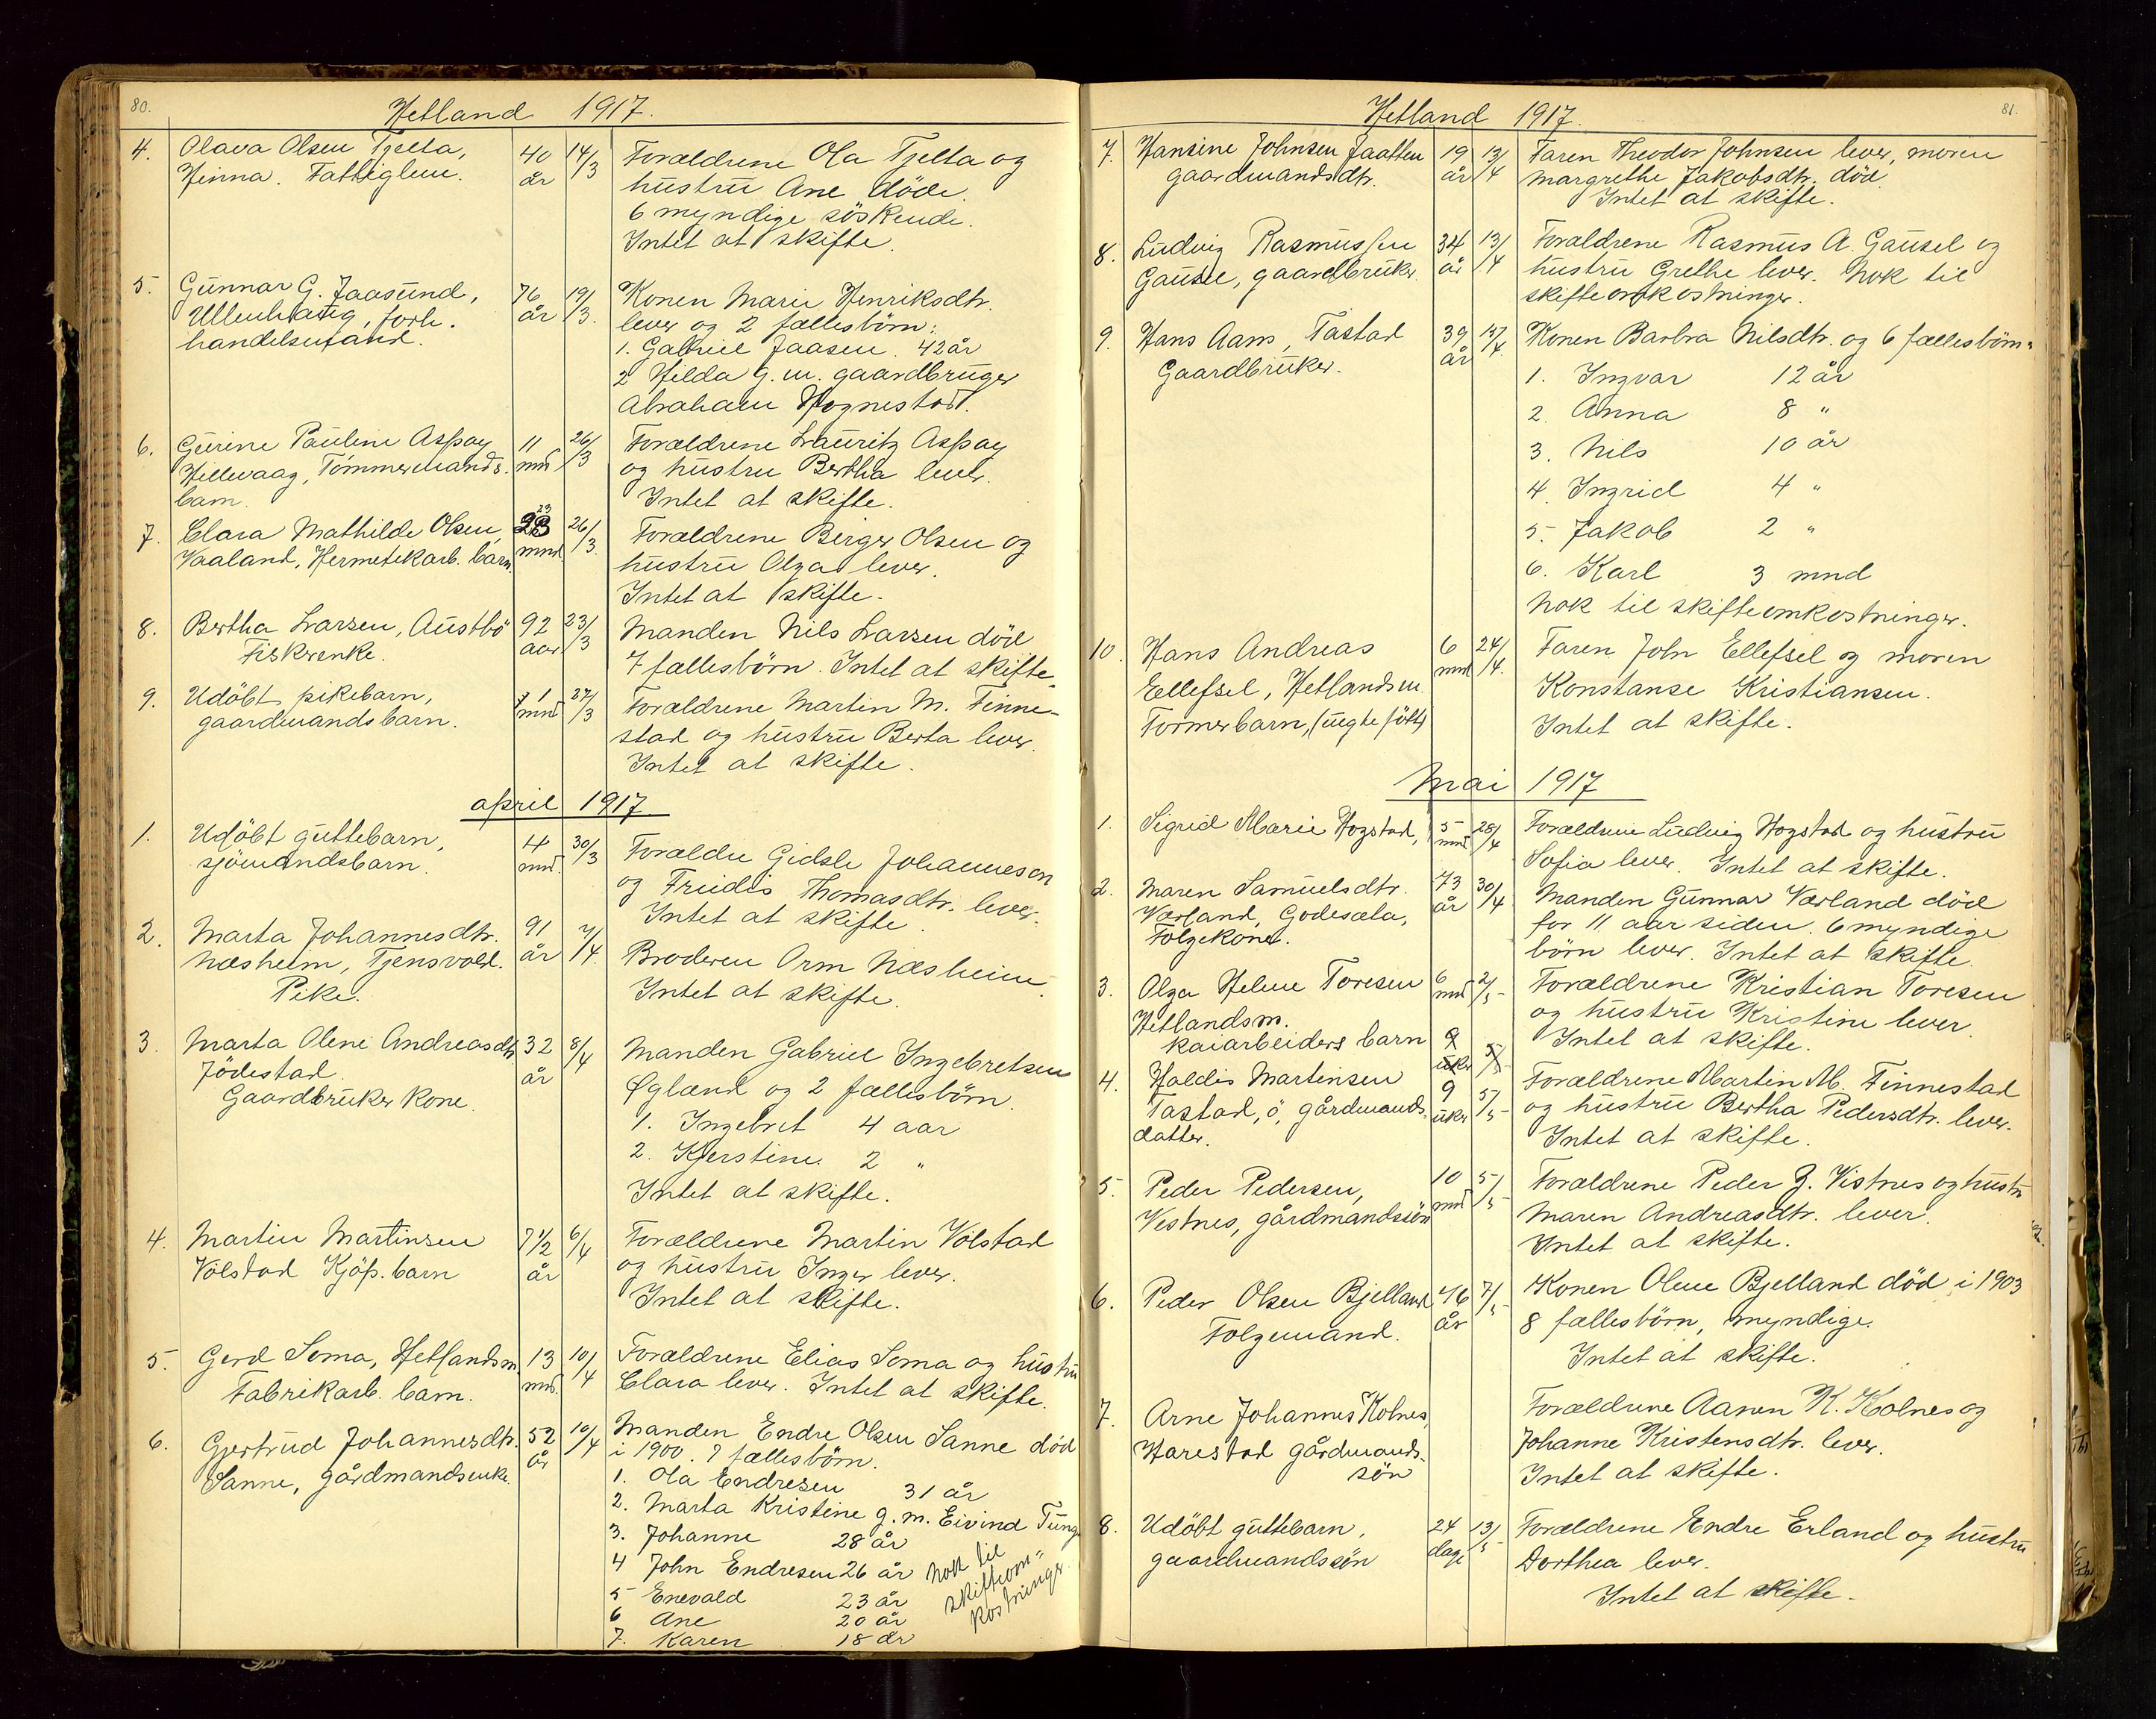 80.
Hetland 1917.
4. Olava Olsen Tjelta, 40 14/3 Forældrene Ola Tjelta og
Hinna. Fattiglem. år hustru Ane døde.
6 myndige söskende.
Intet at skifte.
5. Gunnar G. Jaasund, 76 19/3. Konen Marie Henriksdtr.
Ullenhaug, forh. år lever og 2 fællesbörn:
handelsmand. 1. Gabriel Jaasen. 42 år
2 Hilda g. m. gaardbruger
Abraham Hognestad.
6. Gurine Pauline Aspøy 11 26/3 Forældrene Lauritz Aspøy
Hillevaag, Tömmermands. mnd og hustru Bertha lever.
barn. Intet at skifte.
7. Clara Mathilde Olsen, 23 26/3. Forældrene Birger Olsen og
Vaaland, Hermetikarb. barn. mnd. hustru Olga lever.
Intet at skifte.
8. Bertha Larsen, Austbö 92 23/3 Manden Nils Larsen död
Fiskerenke. aar 7 fællesbörn. Intet at skifte.
9. Udöbt pikebarn, 1 27/3 Forældrene Martin M. Finne-
gaardmandsbarn. mnd stad og hustru Berta lever.
Intet at skifte.
april 1917
1. Udöbt guttebarn, 4 30/3 Forældre Gidsle Johannesen
sjömandsbarn. mnd. og Frudis Thomasdtr. lever.
Intet at skifte.
2. Marta Johannesdtr. 91 7/4. Broderen Orm Næsheim.
Næsheim, Tjensvold. år Intet at skifte.
Pike.
3. Marta Olene Andreasdtr 32 8/4 Manden Gabriel Ingebretsen
Jödestad. år Øgland og 2 fællesbörn.
Gaardbruker kone. 1. Ingebret 4 aar
2. Kjerstine. 2 "
Intet at skifte.
4. Martin Martinsen 7 1/2 6/4 Forældrene Martin Volstad
Volstad Kjöp. barn år og hustru Inger lever.
Intet at skifte.
5. Gerd Soma, Hetlandsm 13 10/4 Forældrene Elias Soma og hustru
Fabrikarb. barn. mnd. Clara lever. Intet at skifte.
6. Gjertrud Johannesdtr. 52 10/4 Manden Endre Olsen Sanne död
Sanne, gårdmandsenke. år i 1900. 7 fællesbörn.
1. Ola Endresen 31 år
2. Marta Kristine g. m. Eivind Tung
3. Johanne 28 år
4 John Endresen 26 år
5 Enevald 23 år
6 Ane 20 år
7. Karen 18 år
Nok til
skifteom-
kostninger.
81.
Hetland 1917.
7. Hansine Johnsen Jaatten 19 13/4 Faren Theodor Johnsen lever, moren
gaardmandsdtr. år Margrethe Jakobsdtr. död.
Intet at skifte.
8. Ludvig Rasmussen 34 13/4 Forældrene Rasmus A. Gausel og
Gausel, gaardbruker. år hustru Grethe lever. Nok til
skifteomkostninger.
9. Hans Aam, Tastad 39 /4. Konen Barbra Nilsdtr. og 6 fællesbörn:
Gaardbruker. år
1. Ingvar 12 år
2. Anna 8 "
3. Nils 10 år
4. Ingrid 4 "
5. Jakob 2 "
6. Karl 3 mnd
Nok til skifteomkostninger.
10. Hans Andreas 6 24/4. Faren John Ellefsel og moren
Ellefsel, Hetlandsm. mnd Konstanse Kristiansen.
Formerbarn, (uegte födt) Intet at skifte.
Mai 1917
1. Sigrid Marie Hogstad, 5 mnd 28/4 Forældrene Ludvig Hogstad og hustru
Sofia lever. Intet at skifte.
2. Maren Samuelsdtr. 73 30/4 Manden Gunnar Værland död
Værland, Godesæta, år for 11 aar siden. 6 myndige
Folgekone. börn lever. Intet at skifte.
3. Olga Helene Toresen 6 mnd 2/5 Forældrene Kristian Toresen
Hetlandsm. og hustru Kristine lever.
kaiarbeiders barn Intet at skifte.
4. Haldis Martinsen 9 5/5 Forældrene Martin M. Finnestad
Tastad, ö, gårdmands- uker og hustru Bertha Pedersdtr. lever.
datter. Intet at skifte.
5. Peder Pedersen, 10 5/5 Forældrene Peder J. Vistnes og hustru
Vestnes, gårdmandssön mnd Maren Andreasdtr. lever.
Intet at skifte.
6. Peder Olsen Bjelland 76 7/5 Konen Olene Bjelland död i 1903
Folgemand. år 8 fællesbörn, myndige.
Intet at skifte.
7. Arne Johannes Kolnes, Forældrene Aanen K. Kolnes og
Harestad gårdmands- Johanne Kristensdtr. lever.
sön Intet at skifte.
8. Udöbt guttebarn, 24 13/5 Forældrene Endre Erland og hustru
gaardmandssön dage Dorthea lever.
Intet at skifte.